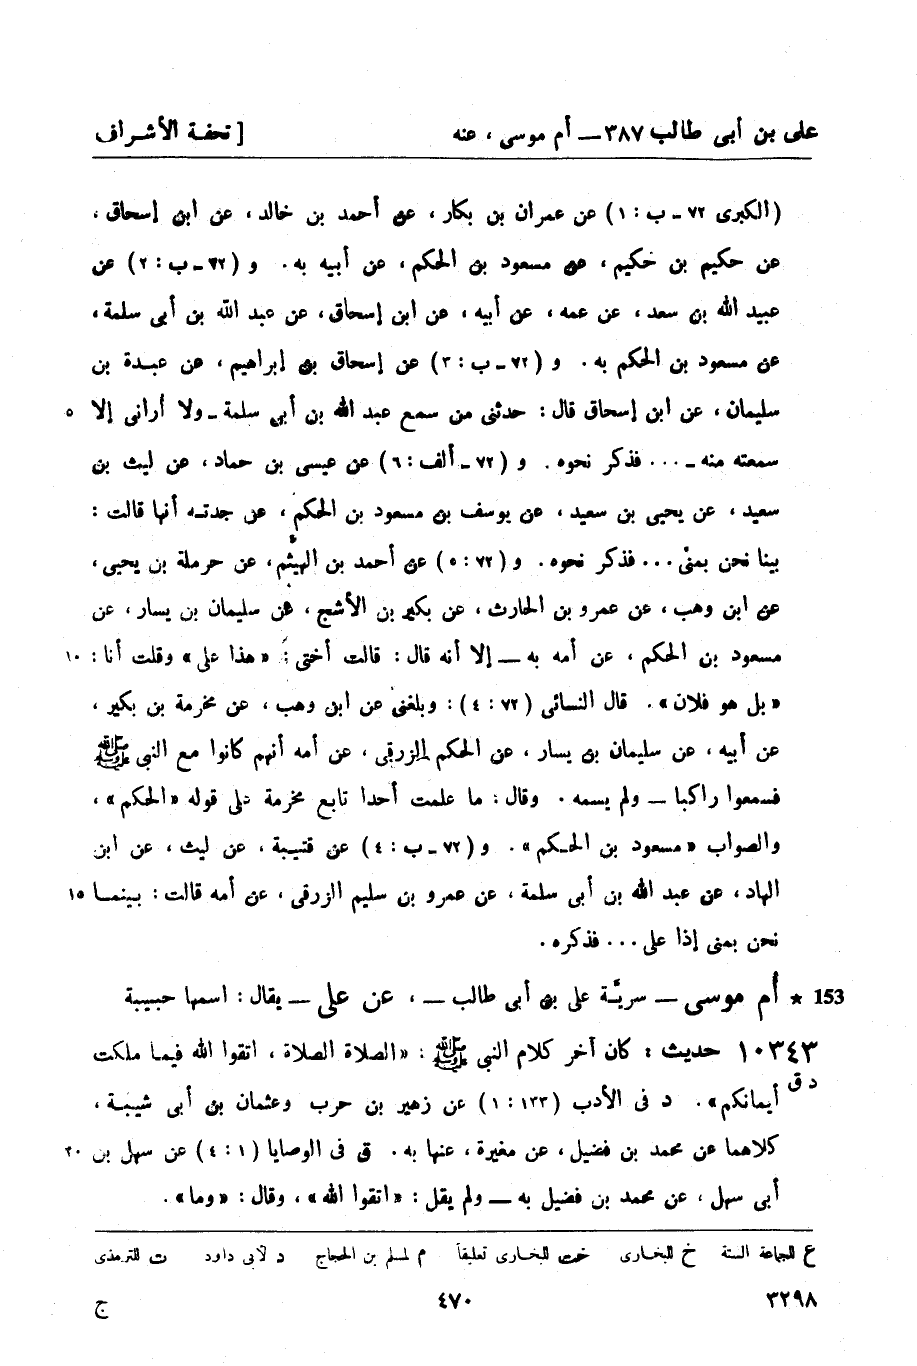 على بن أبى طالب ٣٨٧ــ أم موسى ، عنه [ تحفة الأشراف
(الكبرى ٧٢ ـ ب : ١) عن عمران بن بكار ، عن أحمد بن خالد ، عن ابن إسحاق ،
عن حكيم بن حكيم ، عن مسعود بن الحكم ، عن أبيه به . و (٧٢ ـ ب : ٢) عن
عبيد الله بن سعد ، عن عمه ، عن أبيه ، عن ابن إسحاق ، عن عبد الله بن أبى سلمة ،
عن مسعود بن الحكم به . و (٧٢ ـ ب : ٣) عن إسحاق بن إبراهيم ، عن عبدة بن
سليمان ، عن ابن إسحاق قال : حدثنى من سمع عبد الله بن أبى سلمة ـ ولا أرانى إلا ٥
سمعته منه ـ ... فذكر نحوه . و (٧٢ ـ ألف : ٦) عن عيسى بن حماد ، عن ليث بن
سعيد ، عن يحيى بن سعيد ، عن يوسف بن مسعود بن الحكم ، عن جدته أنها قالت :
بينا نحن بمنى ... فذكر نحوه . و (٧٢ : ٥) عن أحمد بن الهيثم ، عن حرملة بن يحيى ،
عن ابن وهب ، عن عمرو بن الحارث ، عن بكير بن الأشج ، عن سليمان بن يسار ، عن
مسعود بن الحكم ، عن أمه به ــ إلا أنه قال : قالت أختى : « هذا على » وقلت أنا : ١٠
« بل هو فلان » . قال النسائى (٧٢ : ٤) : وبلغنى عن ابن وهب ، عن مخرمة بن بكير ،
عن أبيه ، عن سليمان بن يسار ، عن الحكم الزرقى ، عن أمه أنهم كانوا مع النبى ﷺ
فسمعوا راكبا ــ ولم يسمه . وقال : ما علمت أحدا تابع مخرمة على قوله « الحكم » ،
والصواب « مسعود بن الحكم » . و (٧٢ ـ ب : ٤) عن قتيبة ، عن ليث ، عن ابن
الهاد ، عن عبد الله بن أبى سلمة ، عن عمرو بن سليم الزرقى ، عن أمه قالت : بينما ١٥
نحن بمنى إذا على ... فذكره .
153 * أم موسى ــ سريّة على بن أبى طالب ــ ، عن على ــ يقال : اسمها حبيبة
١٠٣٤٣ حديث : كان آخر كلام النبى ﷺ : « الصلاة الصلاة ، اتقوا الله فيما ملكت
د ق أيمانكم » . د فى الأدب (١٣٣ : ١) عن زهير بن حرب وعثمان بن أبى شيبة ،
كلاهما عن محمد بن فضيل ، عن مغيرة ، عنها به . ق فى الوصايا (١ : ٤) عن سهل بن ٢٠
أبى سهل ، عن محمد بن فضيل به ــ ولم يقل : « اتقوا الله » ، وقال : « وما » .
ع للجماعة الستة خ للبخارى خت للبخارى تعليقاً م لمسلم بن الحجاج د لأبى داود ت للترمذى
٣٢٩٨ ٤٧٠ ج